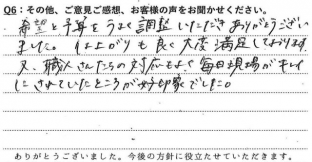 Q6：その他、ご意見ご感想、お客様の声をお聞かせください。
・希望と予算をうまく調整いただきありがとうござい
ました。仕上がりも良く大変満足しております。
又、職人さんたちの対応もよく毎日現場がキレイ
にされていたところが好印象でした。
ありがとうございました。今後の方針に役立たせていただきます。